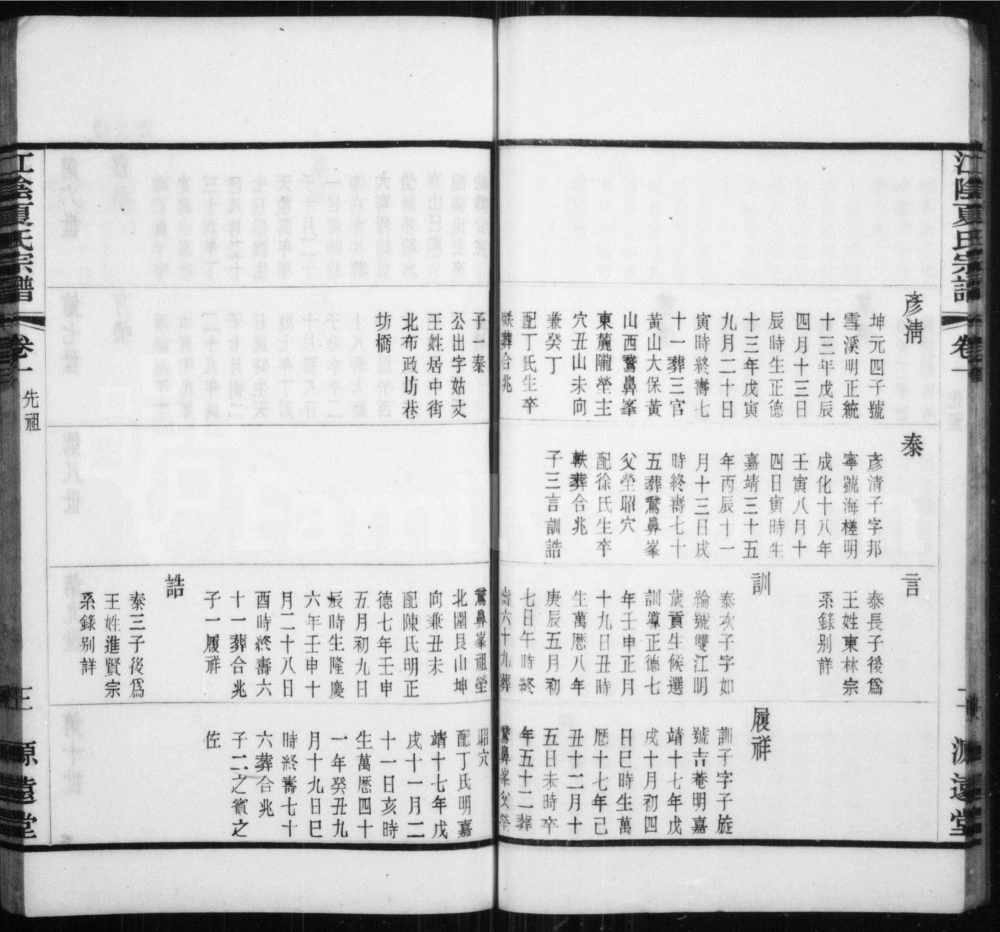 江陰夏氏宗譜
卷一
二
源遠堂
彥清
坤元四子號
雪溪明正統
十三年戊辰
四月十三日
辰時生正德
十三年戊寅
九月二十日
寅時終壽七
十一葬三官
黃山大保黃
山西鷩鼻峯
東麓隴塋主
穴丑山未向
兼癸丁
配丁氏生卒
軼葬合兆
子泰
公出字姑丈
王姓居中街
北布政坊巷
坊橋
泰
彥清子字邦
寧號海槎明
成化十八年
壬寅八月十
四日寅時生
嘉靖三十五
年丙辰十一
月十三日戌
時終壽七十
五葬鷩鼻峯
父塋昭穴
配徐氏生卒
軼葬合兆
子三言訓誥
言
泰長子後為
王姓東林宗
系錄別詳
訓
泰次子字如
綸號雙江明
歲貢生候選
訓導正德七
年壬申正月
十九日丑時
生萬曆八年
庚辰五月初
七日午時終
壽六十九葬
鷩鼻峯祖塋
北園艮山坤
向兼丑未
配陳氏明正
德七年壬申
五月初九日
辰時生隆慶
六年壬申十
月二十八日
酉時終壽六
十一葬合兆
子一履祥
誥
泰三子後為
王姓進賢宗
系錄別詳
履祥
訓子字子旋
號吉菴明嘉
靖十七年戊
戌十月初四
日巳時生萬
曆十七年己
丑十二月十
五日未時卒
年五十二葬
鷩鼻峯父塋
昭穴
配丁氏明嘉
靖十七年戊
戌十一月二
十一日亥時
生萬曆四十
一年癸丑九
月十九日巳
時終壽七十
六葬合兆
子二之賓之
佐
江陰夏氏宗譜
卷一
先祖
三
源遠堂